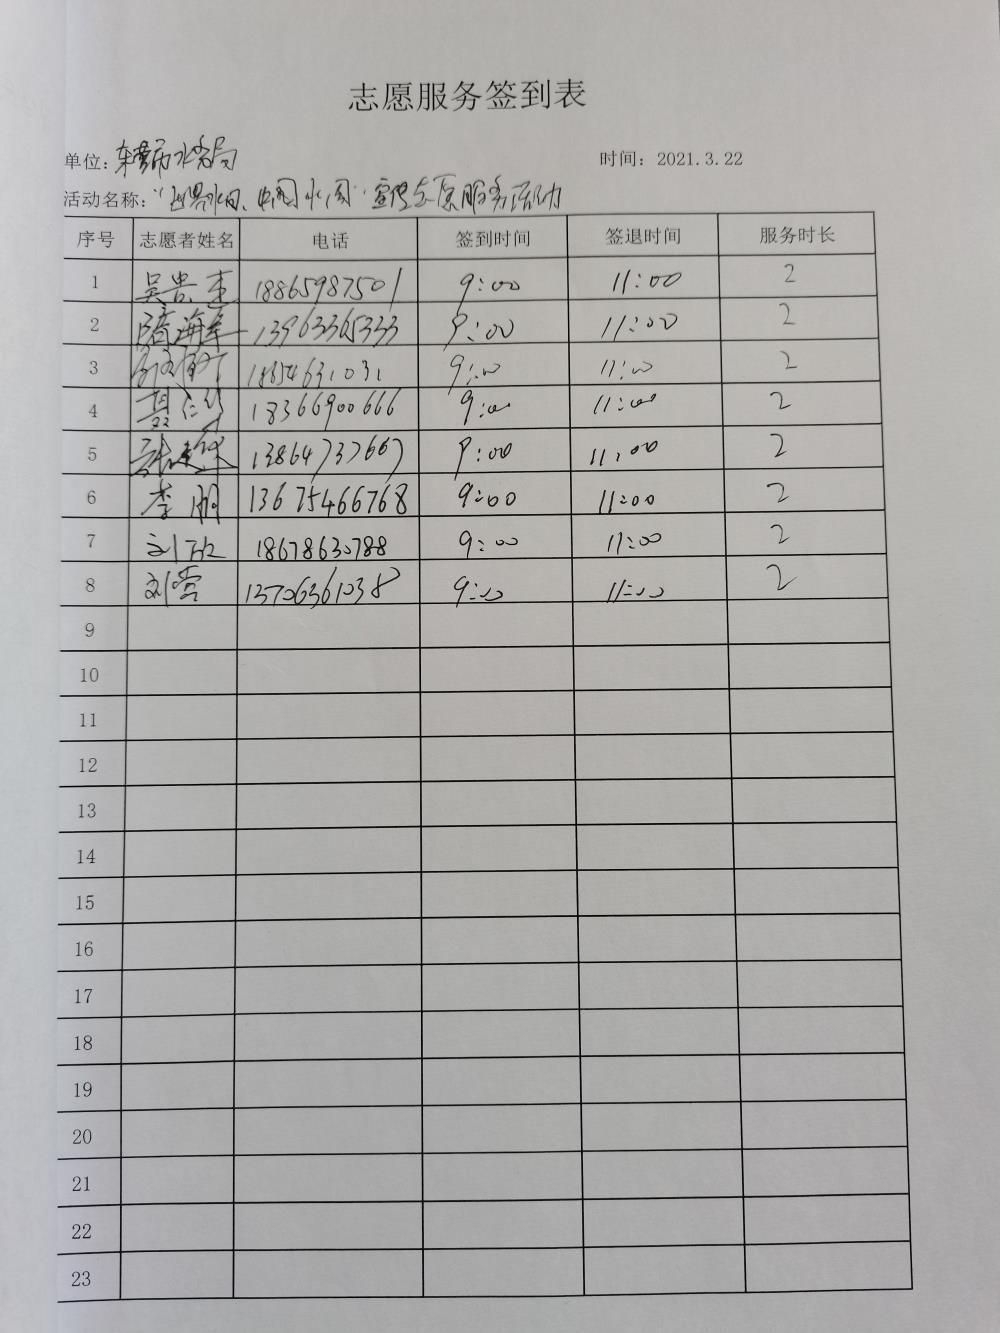 志愿服务签到表
单位：东营市水务局
时间：2021.3.22
活动名称：“世界水日、中国水周”宣传志愿服务活动
序号 志愿者姓名 电话 签到时间 签退时间 服务时长
1 吴贵 18865987501 9:00 11:00 2
2 隋海军 13963365333 9:00 11:00 2
3 18854631031 9:00 11:00 2
4 聂 18366900666 9:00 11:00 2
5 张建 13864737667 9:00 11:00 2
6 李朋 13675466768 9:00 11:00 2
7 刘 18678630788 9:00 11:00 2
8 刘营 13706361038 9:00 11:00 2
9
10
11
12
13
14
15
16
17
18
19
20
21
22
23